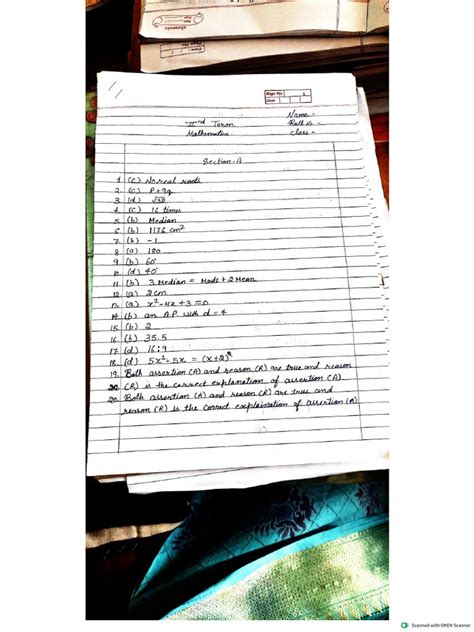 Page No. 1
Date
Name -
IInd Term
Roll No -
Mathematics
Class -
Section - A
1 (c) No real roots
2 (c) P+9q
3 (d)
4 (c) 16 times
5 (b) Median
6 (b) 1176 cm²
7. (b) -1
8 (a) 180
9 (b) 60°
10. (d) 40°
11 (b) 3 Median = Mode + 2 Mean
12 (a) 2cm
13. (a) x²-4x+3=0
14 (b) an A.P with d = 4
15 (b) 2
16 (b) 35.5
17 (d) 16:9
18. (d) 5x²-5x = (x+2)²
19. Both assertion (A) and reason (R) are true and reason
20. (R) is the correct explanation of assertion (A).
20. Both assertion (A) and reason (R) are true and
reason (R) is the correct explaination of assertion (A)
Scanned with OKEN Scanner